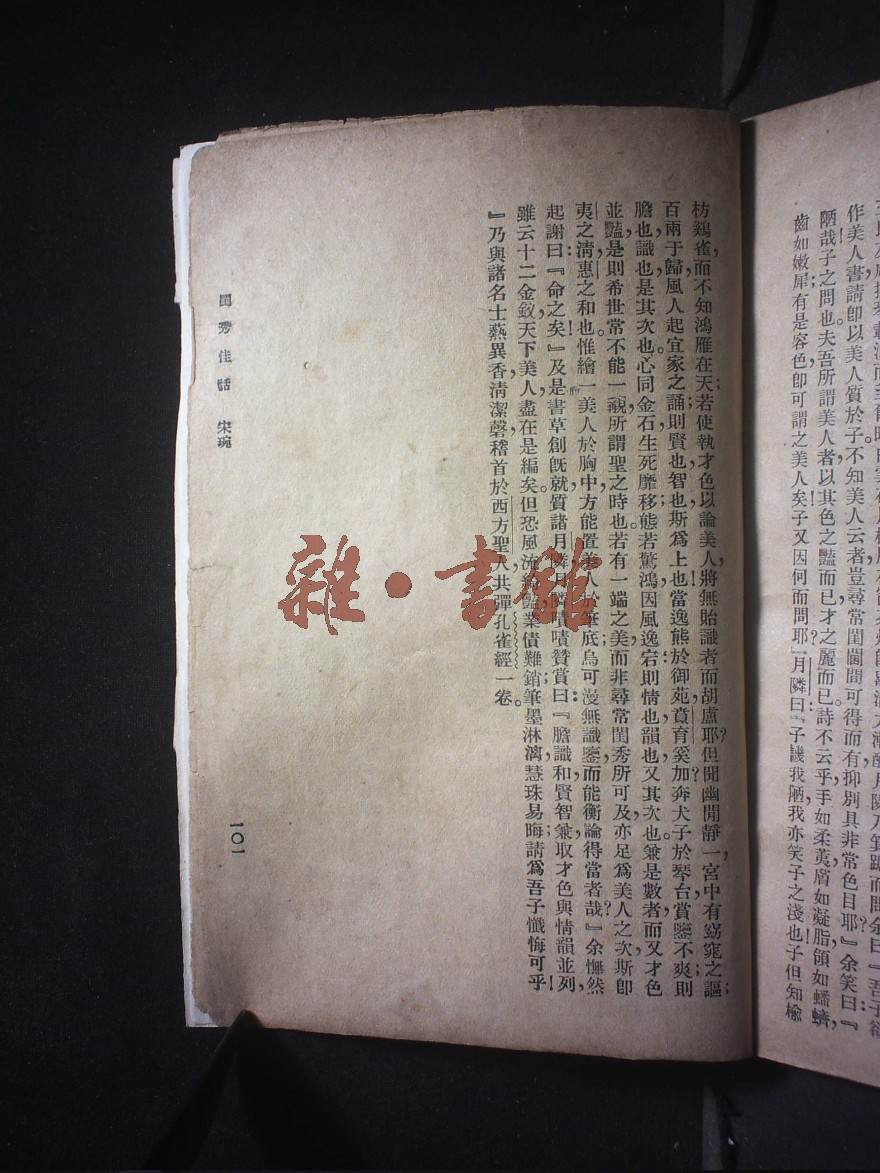 作美人書請卽以美人質於子不知美人云者豈尋常閨閫間可得而有抑別具非常色目耶』余笑曰『
陋哉子之問也夫吾所謂美人者以其色之豔而已才之麗而已詩不云乎手如柔荑膚如凝脂領如蝤蠐，
齒如嫩犀有是容色卽可謂之美人矣子又因何而問耶』月隣曰『子譏我陋，我亦笑子之淺也子但知楡
枋鷃雀，而不知鴻雁在天；若使執才色以論美人，將無貽識者而胡盧耶？但聞幽閒靜一，宮中有窈窕之謳；
百兩于歸，風人起宜家之誦，則賢也智也，斯爲上也。當逸熊於御苑，賁育奚加？奔犬子於琴台，賞鑒不爽，則
膽也識也，是其次也。心同金石，生死靡移；態若驚鴻，因風逸宕；則情也韻也，又其次也。兼是數者，而又才色
並豔，是則希世常不能一覯，所謂聖之時也。若有一端之美，而非尋常閨秀所可及，亦足爲美人之次，斯卽
夷之淸，惠之和也。惟繪一美人於胸中，方能置美人於筆底，烏可漫無識鑒，而能衡論得當者哉？』余憮然
起謝曰：『命之矣！』及是書草創旣就，質諸月隣，月隣嘖嘖贊賞曰：『膽識和賢智兼取，才色與情韻並列，
雖云十二金釵，天下美人盡在是編矣。但恐風流綺豔，業債難銷；筆墨淋漓，慧珠易晦；請爲吾子懺悔可乎！
』乃與諸名士爇異香，淸潔磬，稽首於西方聖人，共彈孔雀經一卷。
閨秀佳話　宋琬
一〇一
雜·書館